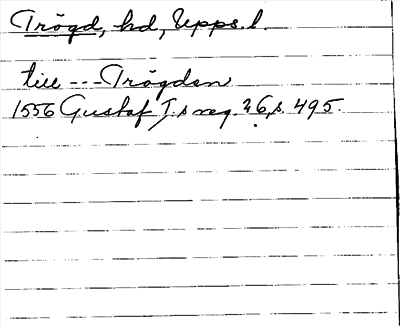 Trögd, hd, Upps. l.
till --- Trögden
1556 Gustaf I:s reg. 26, s. 495.